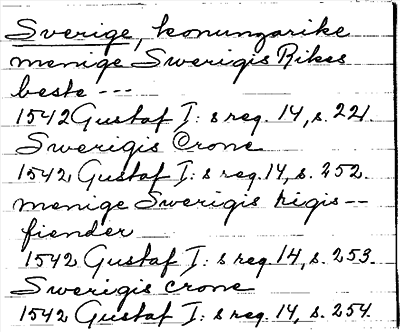 Sverige, konungarike
menige Swerigis Rikes
beste ---
1542 Gustaf I: s reg. 14, s. 221.
Swerigis Crone
1542 Gustaf I: s reg. 14, s. 252.
menige Swerigis rigis --
fiender
1542 Gustaf I: s reg. 14, s. 253.
Swerigis crone
1542 Gustaf I: s reg. 14, s. 254.